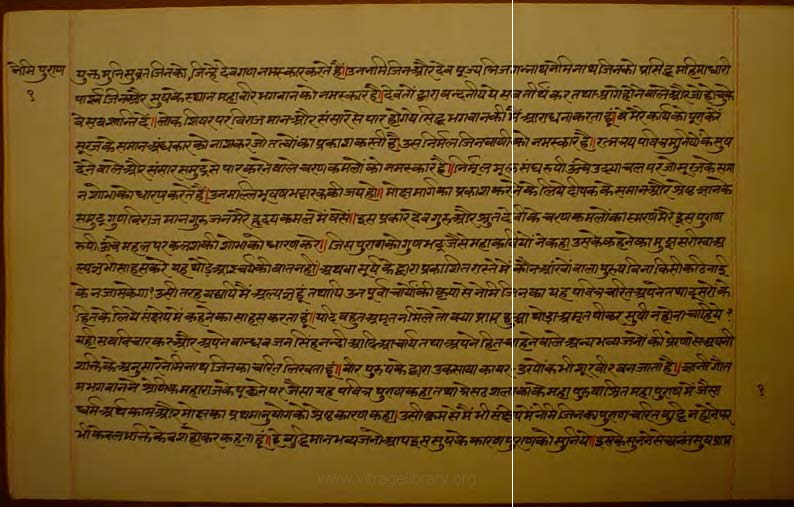 नेमि पुराण
१
युक्त मुनिसुव्रत जिनको, जिन्हें देवगण नमस्कार करते हैं॥ उन नमि जिन और देव पूज्य त्रिजगन्नाथ नेमिनाथ जिनको प्रसिद्ध महिमाधारी
पार्श्व जिन और सुषके स्थान महावीर भगवान को नमस्कार है॥ देवों द्वारा वन्दनीय ये सब तीर्थंकर तथा आगे होने वाले और जो हो चुके
वे सब शान्ति दें॥ लोक शिषर पर विराजमान और संसार से पार हो गये सिद्ध भगवान की मैं आराधना करता हूं वे मेरे कार्य को पूरा करें
सूरज के समान अंधकार को नाश कर जो तत्वों का प्रकाश करती है, उस निर्मल जिनवाणी को नमस्कार है॥ रत्नत्रय पवित्र मुनियों के सुष
देने वाले और संसार समुद्र से पार करने वाले चरण कमलों को नमस्कार है॥ निर्मल मूल संघ रूपी ऊंचे उदयाचल पर जो सूरज के समा
न शोभा को धारण करते हैं उन मल्लिभूषण भट्टारक की जय हो॥ मोक्षमार्ग का प्रकाश करने के लिये दीपक के समान और श्रेष्ठ ज्ञान के
समुद्र गुण विराजमान गुरु जन मेरे हृदय कमल में बसें॥ इस प्रकार देव गुरु और श्रुत देवी के चरण कमलों का स्मरण मेरे इस पुराण
रूपी ऊंचे महल पर कलश की शोभा को धारण करे॥ जिस पुराण को गुणभद्र जैसे महाकवियों ने कहा उसके कहने का मुझ सरीखा अ
ल्पज्ञ भी साहस करे यह थोड़े आश्चर्य की बात नहीं अथवा सूर्य के द्वारा प्रकाशित रास्ते में कौन आंखों वाला पुरुष बिना किसी कठिनाई
के न जा सकेगा! उसी तरह यद्यपि मैं अल्पज्ञ हूं तथापि उन पूर्वाचार्यों की कृपा से नेमि जिन का यह पवित्र चरित अपने तथा दूसरों के
हित के लिये संक्षेप में कहने का साहस करता हूं॥ यदि बहुत अमृत न मिले तो क्या प्राप्त हुआ थोड़ा अमृत पीकर सुषी न होना चाहिये?
यही सब विचार कर और अपने बान्धव जन सिंहनन्दी आदि आचार्य तथा अपने हित चाहने वाले अन्य भव्य जनों की प्रेरणा से अपनी
शक्ति के अनुसार नेमिनाथ जिनका चरित लिखता हूं॥ वीर पुरुष के द्वारा उकसाया कायर डरपोक भी शूरवीर बन जाता है॥ ज्ञानी गौत
म भगवान ने श्रेणिक महाराज के पूछने पर जैसा यह पवित्र पुराण कहा तथा त्रेसठ शलाका के महा पुरुषाश्रित महा पुराण में जैसा
धर्म अर्थ काम और मोक्ष का प्रथमानुयोग को श्रेष्ठ कारण कहा॥ उसी क्रम से मैं भी संक्षेप में नेमि जिनका पुराण चरित बुद्धि न होने पर
भी केवल भक्ति के वश होकर कहता हूं॥ हे बुद्धिमान भव्य जनो आप इस सुष के कारण पुराण को सुनिये॥ इसके सुनने से अनंत सुष प्राप्त
१
www.vitragelibrary.org